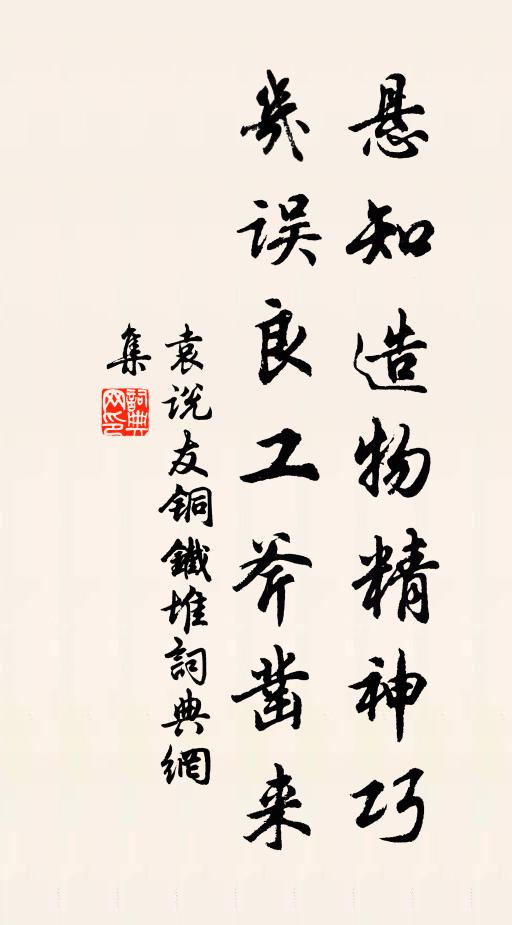 悬知造物精神巧
几误良工斧凿来
袁说友銅鐵堆詞典網
集
詞典
网印